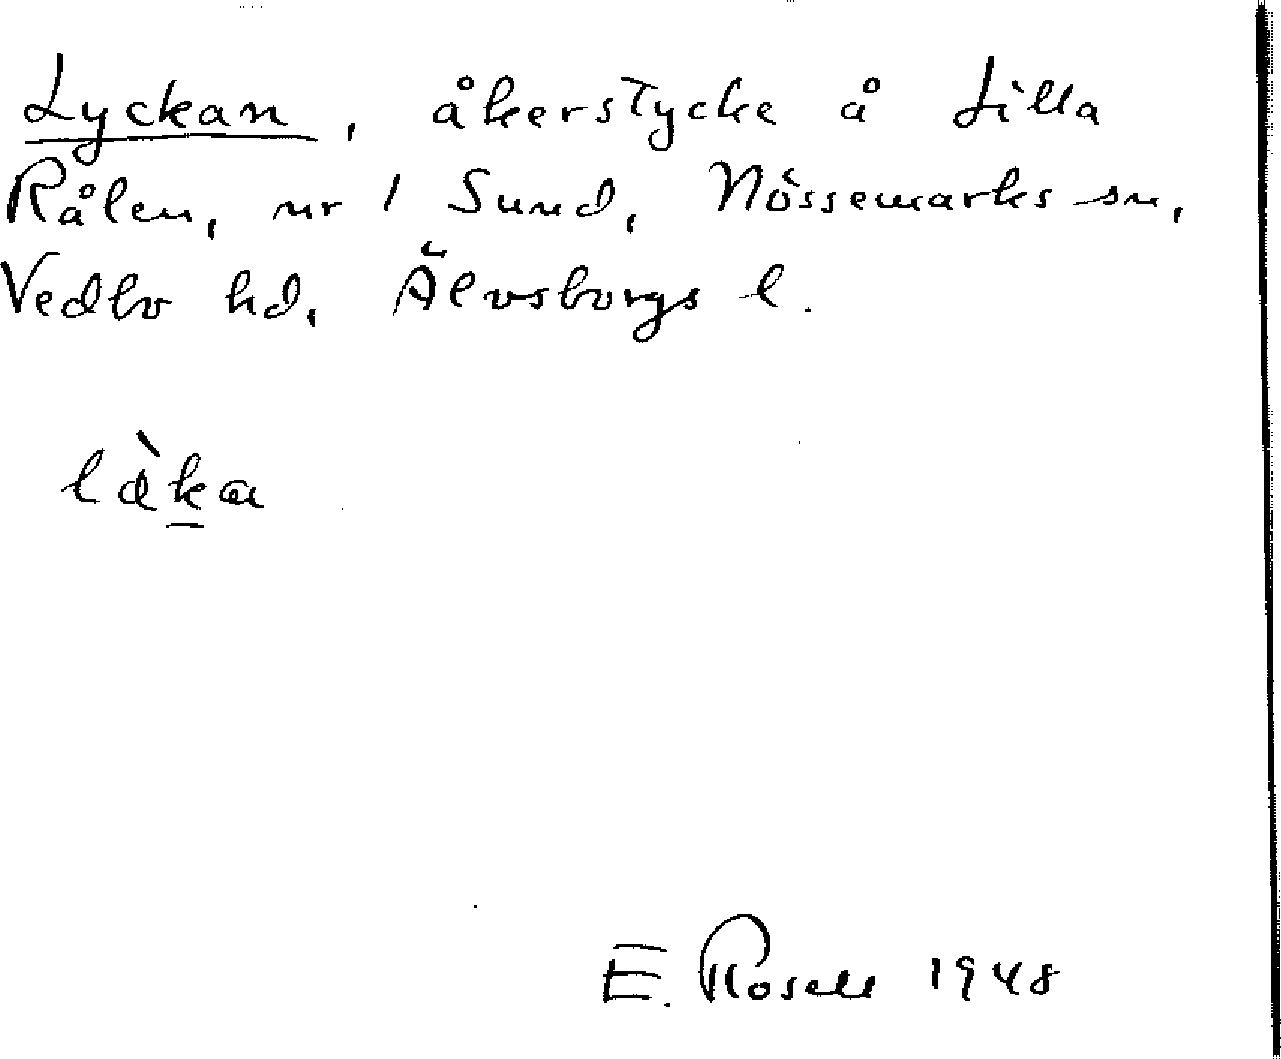 Lyckan, åkerstycke å Lilla
Rålen, nr 1 Sund, Nössemarks sn,
Vedbo hd, Älvsborgs l.
E. Rosell 1948